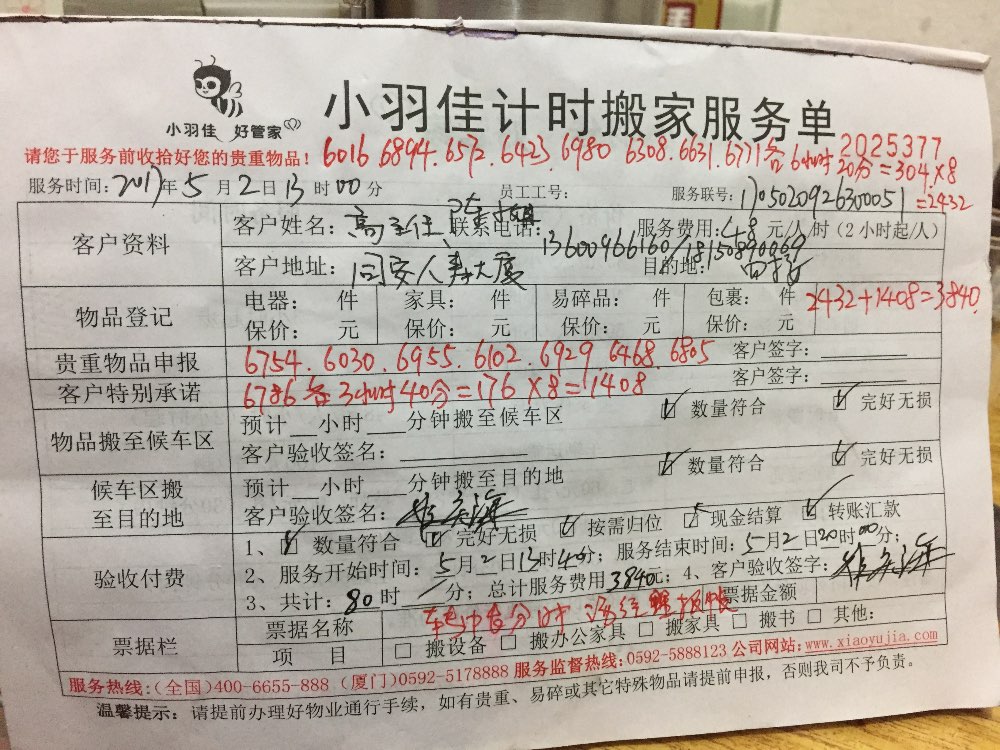 小羽佳 好管家
小羽佳计时搬家服务单
请您于服务前收拾好您的贵重物品! 6016.6894.6572.6423.6980 6308.6631.6771各6小时20分=304×8
2025377
服务时间:2017年5月2日13时00分 员工工号: 服务联号:1705020926300051 =2432
客户资料 客户姓名:高主任 联系电话:13600966160/18150890069 服务费用:48元/人/时(2小时起/人)
客户地址:同安人寿大厦 目的地:
物品登记 电器: 件 家具: 件 易碎品: 件 包裹: 件 2432+1408=3840
保价: 元 保价: 元 保价: 元 保价: 元
贵重物品申报 6754.6030.6955.6102.6929.6468.6805 客户签字:
客户特别承诺 6786各3小时40分=176×8=1408 客户签字:
物品搬至候车区 预计__小时___分钟搬至候车区 ☑ 数量符合 ☑ 完好无损
客户验收签名:
候车区搬至目的地 预计__小时___分钟搬至目的地 ☑ 数量符合 ☑ 完好无损
客户验收签名:
验收付费 1、☑ 数量符合 ☑ 完好无损 ☑ 按需归位 ☑ 现金结算 ☑ 转账汇款
2、服务开始时间:5月2日13时40分;服务结束时间:5月2日20时00分;
3、共计:80时/分;总计服务费用3840元;4、客户验收签字:
票据栏 票据名称 票据金额
项 目 □ 搬设备 □ 搬办公家具 □ 搬家具 □ 搬书 □ 其他:
服务热线:(全国)400-6655-888 (厦门)0592-5178888 服务监督热线:0592-5888123 公司网站:www.xiaoyujia.com
温馨提示:请提前办理好物业通行手续,如有贵重、易碎或其它特殊物品请提前申报,否则我司不予负责。